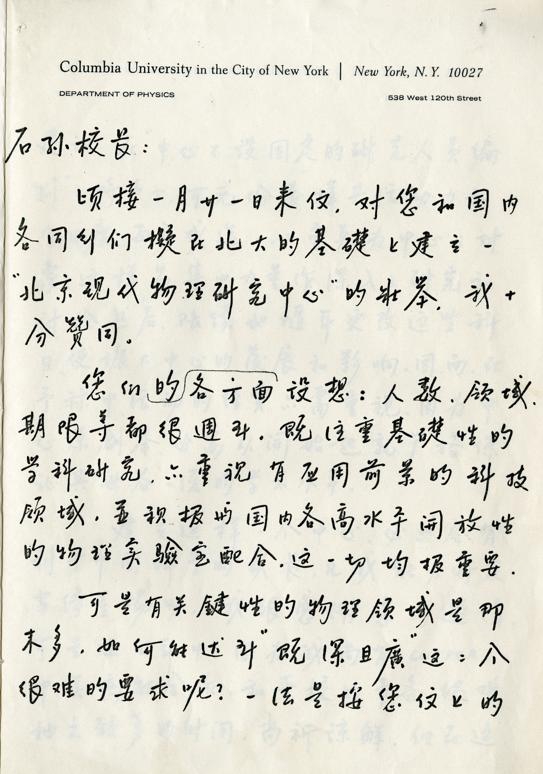 Columbia University in the City of New York | New York, N. Y. 10027
DEPARTMENT OF PHYSICS 538 West 120th Street
石孙校长：
顷接一月廿一日来信，对您和国内
各同们擬在北大的基礎上建立一
“北京现代物理研究中心”的壮举，我十
分贊同。
您们的各方面设想：人数、领域、
期限等都很週到。既注重基礎性的
学科研究，亦重视有应用前景的科技
领域，並积极的国内各高水平開放性
的物理实驗室配合。这一切均极重要。
可是有关鍵性的物理领域是那
末多，如何能达到“既深且廣”这二个
很难的要求呢？一法是按您信上的